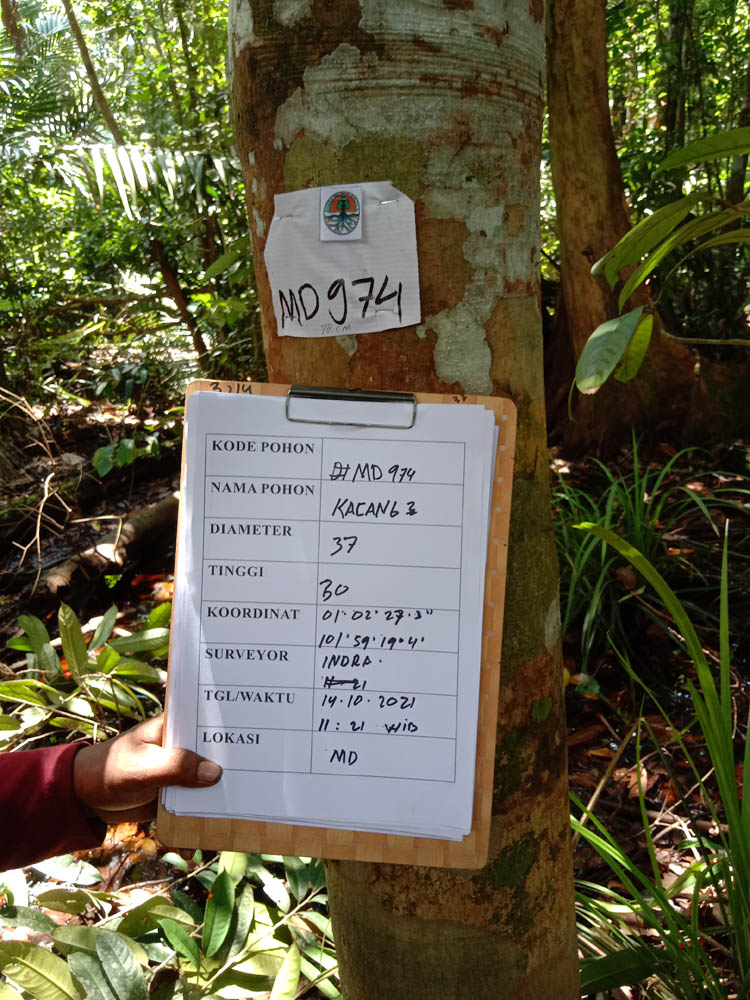 MD 974
78 cm
3,14
KODE POHON MD 974
NAMA POHON KACANG 2
DIAMETER 37
TINGGI 30
KOORDINAT 01° 02' 27.3"
101° 59' 19.4'
SURVEYOR INDRA.
TGL/WAKTU 14.10.2021
11 : 21 WIB
LOKASI MD